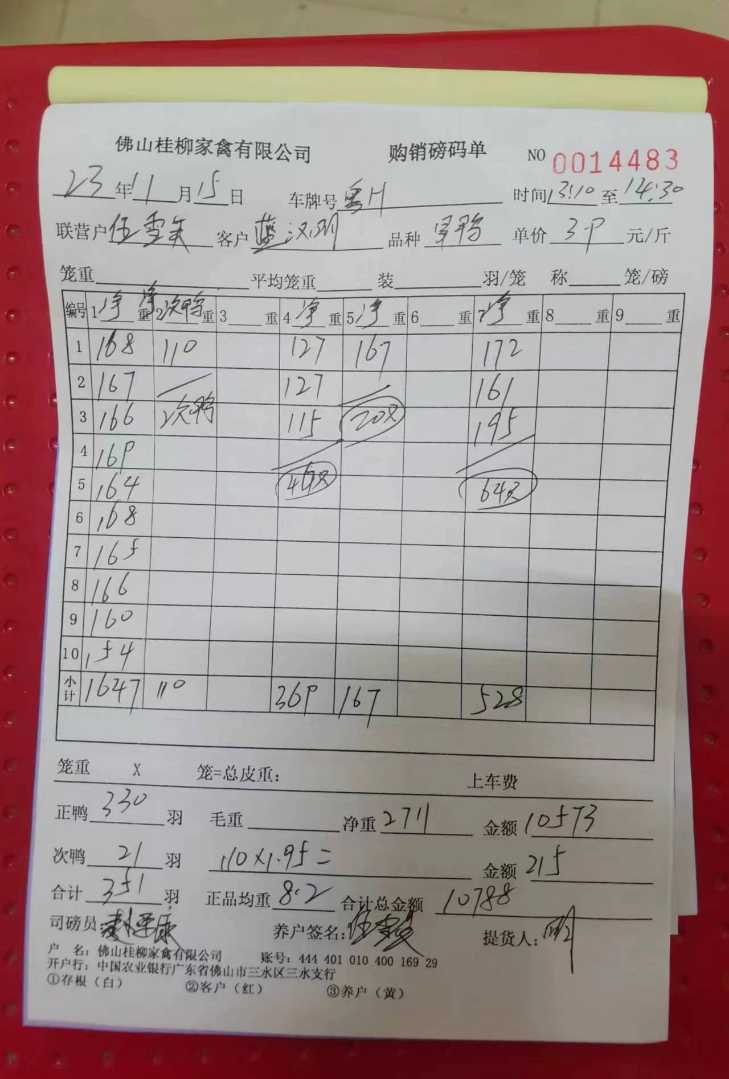 佛山桂柳家禽有限公司 购销磅码单 NO 0014483
23年11月15日 车牌号 粤H 时间13:10至14:30
联营户 伍雪 客户 蓝汉明 品种 单价 3.9 元/斤
笼重 平均笼重 装 羽/笼 称 笼/磅
编号 1净重 2次鸭重 3 重 4净重 5净重 6 重 净重 8 重 9 重
1 168 110 127 167 172
2 167 127 161
3 166 次鸭 115 20只 195
4 169
5 164 46只 64只
6 168
7 165
8 166
9 160
10 154
小计 1647 110 369 167 528
笼重 X 笼=总皮重: 上车费
正鸭 330 羽 毛重 净重 2711 金额 10573
次鸭 21 羽 110×1.95= 金额 215
合计 351 羽 正品均重 8.2 合计总金额 10788
司磅员: 养户签名: 伍雪 提货人: 明
户 名: 佛山桂柳家禽有限公司 账号: 444 401 010 400 169 29
开户行: 中国农业银行广东省佛山市三水区三水支行
①存根(白) ②客户(红) ③养户(黄)